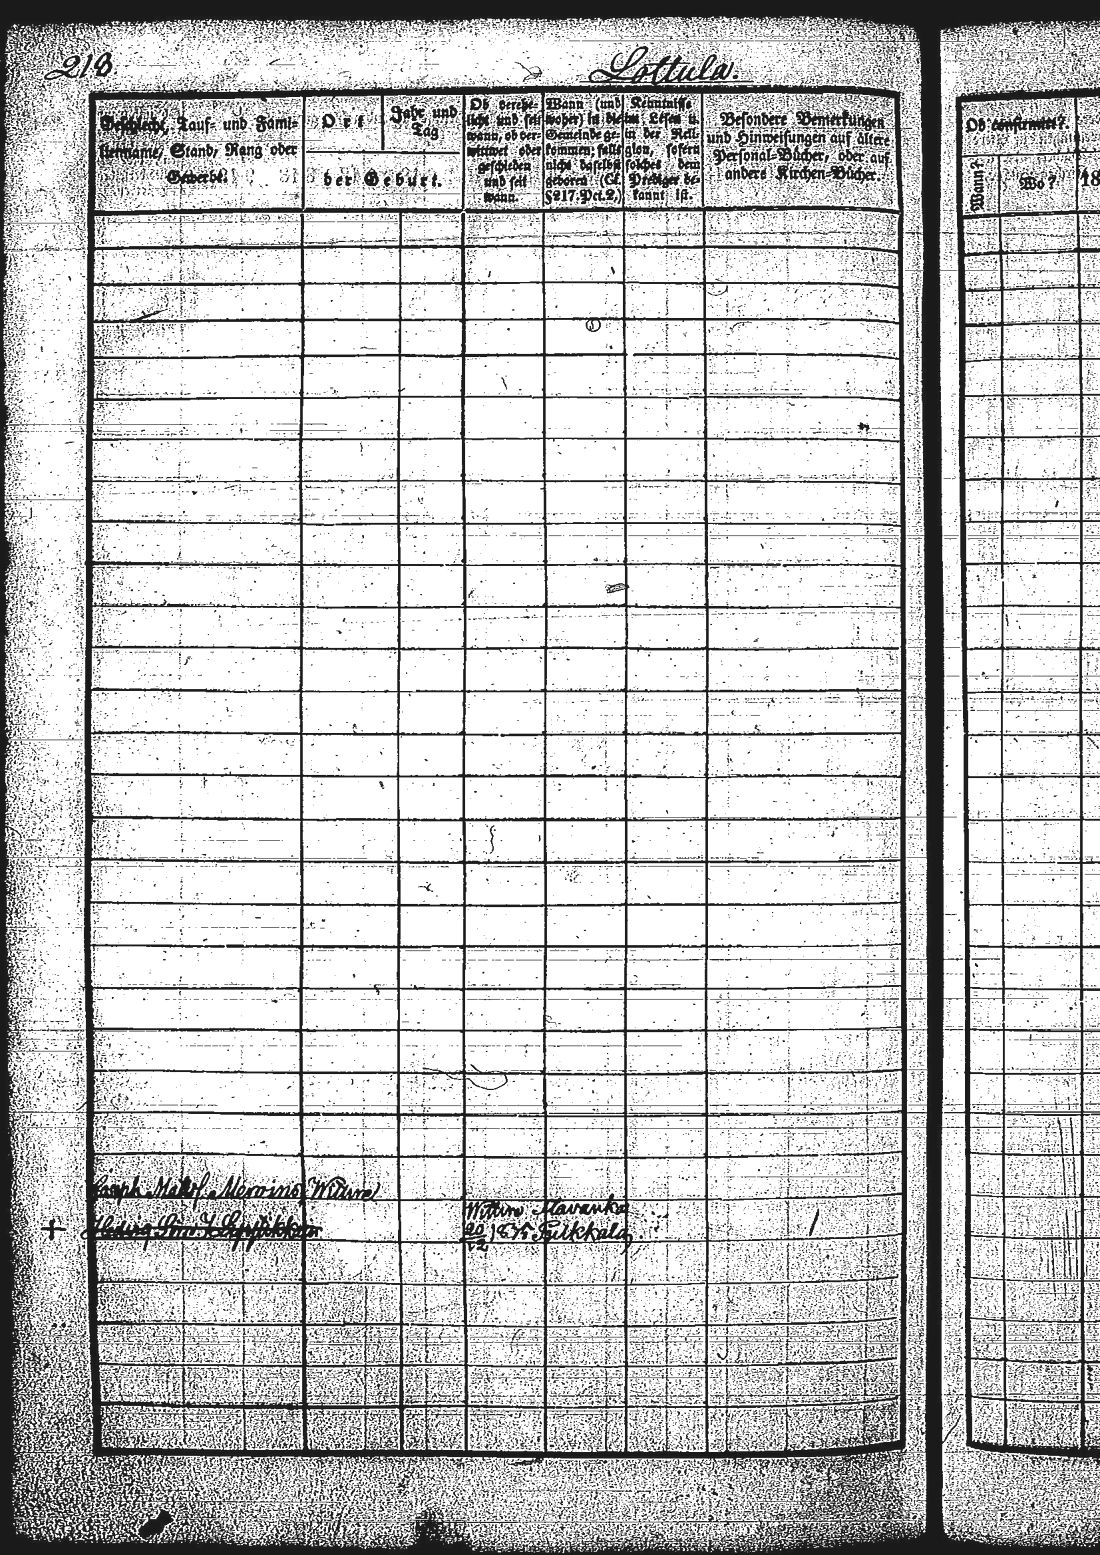 218
Lottula.
Geschlecht, Tauf- und Fami-
lienname, Stand, Rang oder
Gewerbe.
Ort
Jahr und
Tag
der Geburt.
Ob verehe-
licht und seit
wann, ob ver-
wittwet oder
geschieden
und seit
wann.
Wann (und
woher) in die
Gemeinde ge-
kommen; falls
nicht daselbst
geboren (Cf.
§ 217. Pct. 2.)
Kenntnisse
im Lesen u.
in der Reli-
gion, sofern
solches dem
Prediger be-
kannt ist.
Besondere Bemerkungen
und Hinweisungen auf ältere
Personal-Bücher, oder auf
andere Kirchen-Bücher.
Ob confirmirt?
Wann?
Wo?
18
Joseph Wittwe
Wittwe Slavanka
+ Hedwig
20/12 1875 Pulkkala